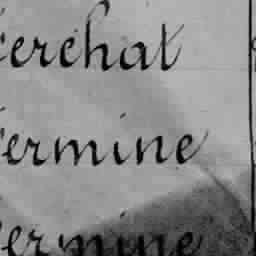 erchat
ermine
ermine